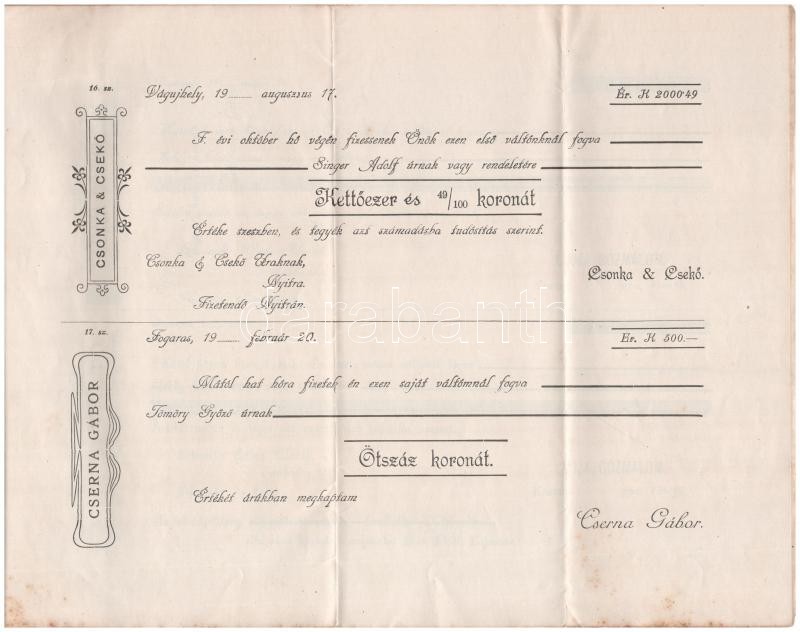 16. sz.
CSONKA & CSEKŐ
Vágujhely, 19 augusztus 17.
Ér. K 2000·49
F. évi október hó végén fizessenek Önök ezen első váltónknál fogva
Singer Adolf úrnak vagy rendeletére
Kettőezer és 49/100 koronát
Értéke szeszben, és tegyék azt számadásba tudósítás szerint.
Csonka & Csekő Uraknak,
Nyitra.
Csonka & Csekő.
Fizetendő Nyitrán.
darabanth
17. sz.
CSERNA GÁBOR
Fogaras, 19 február 20.
Ér. K 500.—
Mától hat hóra fizetek én ezen saját váltómnál fogva
Tömöry Győző úrnak
Ötszáz koronát.
Értékét árúkban megkaptam
Cserna Gábor.